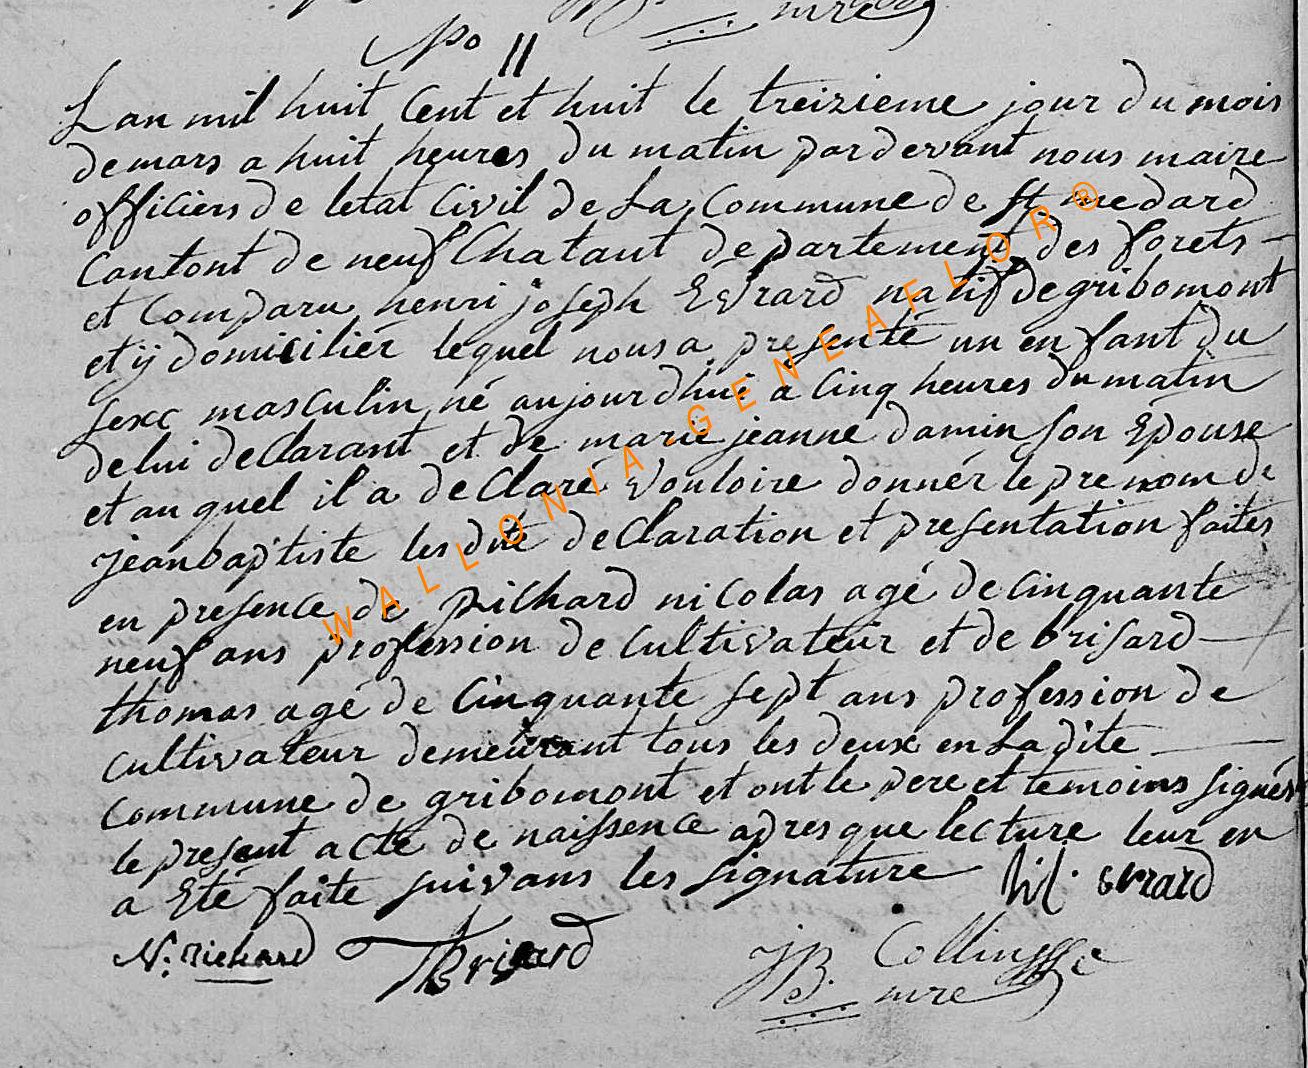 mre
No 11
Lan mil huit Cent et huit le treizieme jour du mois
demars a huit heures du matin pardevant nous maire
officiers de letat Civil de La Commune de St medard
Cantont de neufChatant departement des forets
et Comparu henri joseph Evrard natif de gribomont
et ÿ domicilier lequel nous a presenté un enfant du
sexe masculin né aujourdhui a Cinq heures du matin
delui deClarant et de marie jeanne damin son Epouse
et auquel il a deClaré vouloire donnér le prenom de
jeanbaptiste les dite deClaration et presentation faites
en presence de Richard nicolas agé de cinquante
neuf ans profession de Cultivateur et de brisard
thomas agé de Cinquante sept ans profession de
Cultivateur demeurant tous les deux en La dite
Commune de gribomont et ont le pere et temoins signés
le present acte de naissence apres que lecture leur en
a Eté faite suivans les signature hi evrard
N: Richard TBrisard JB. Collinsse
mre
WALLONIA GENEAFLOR®